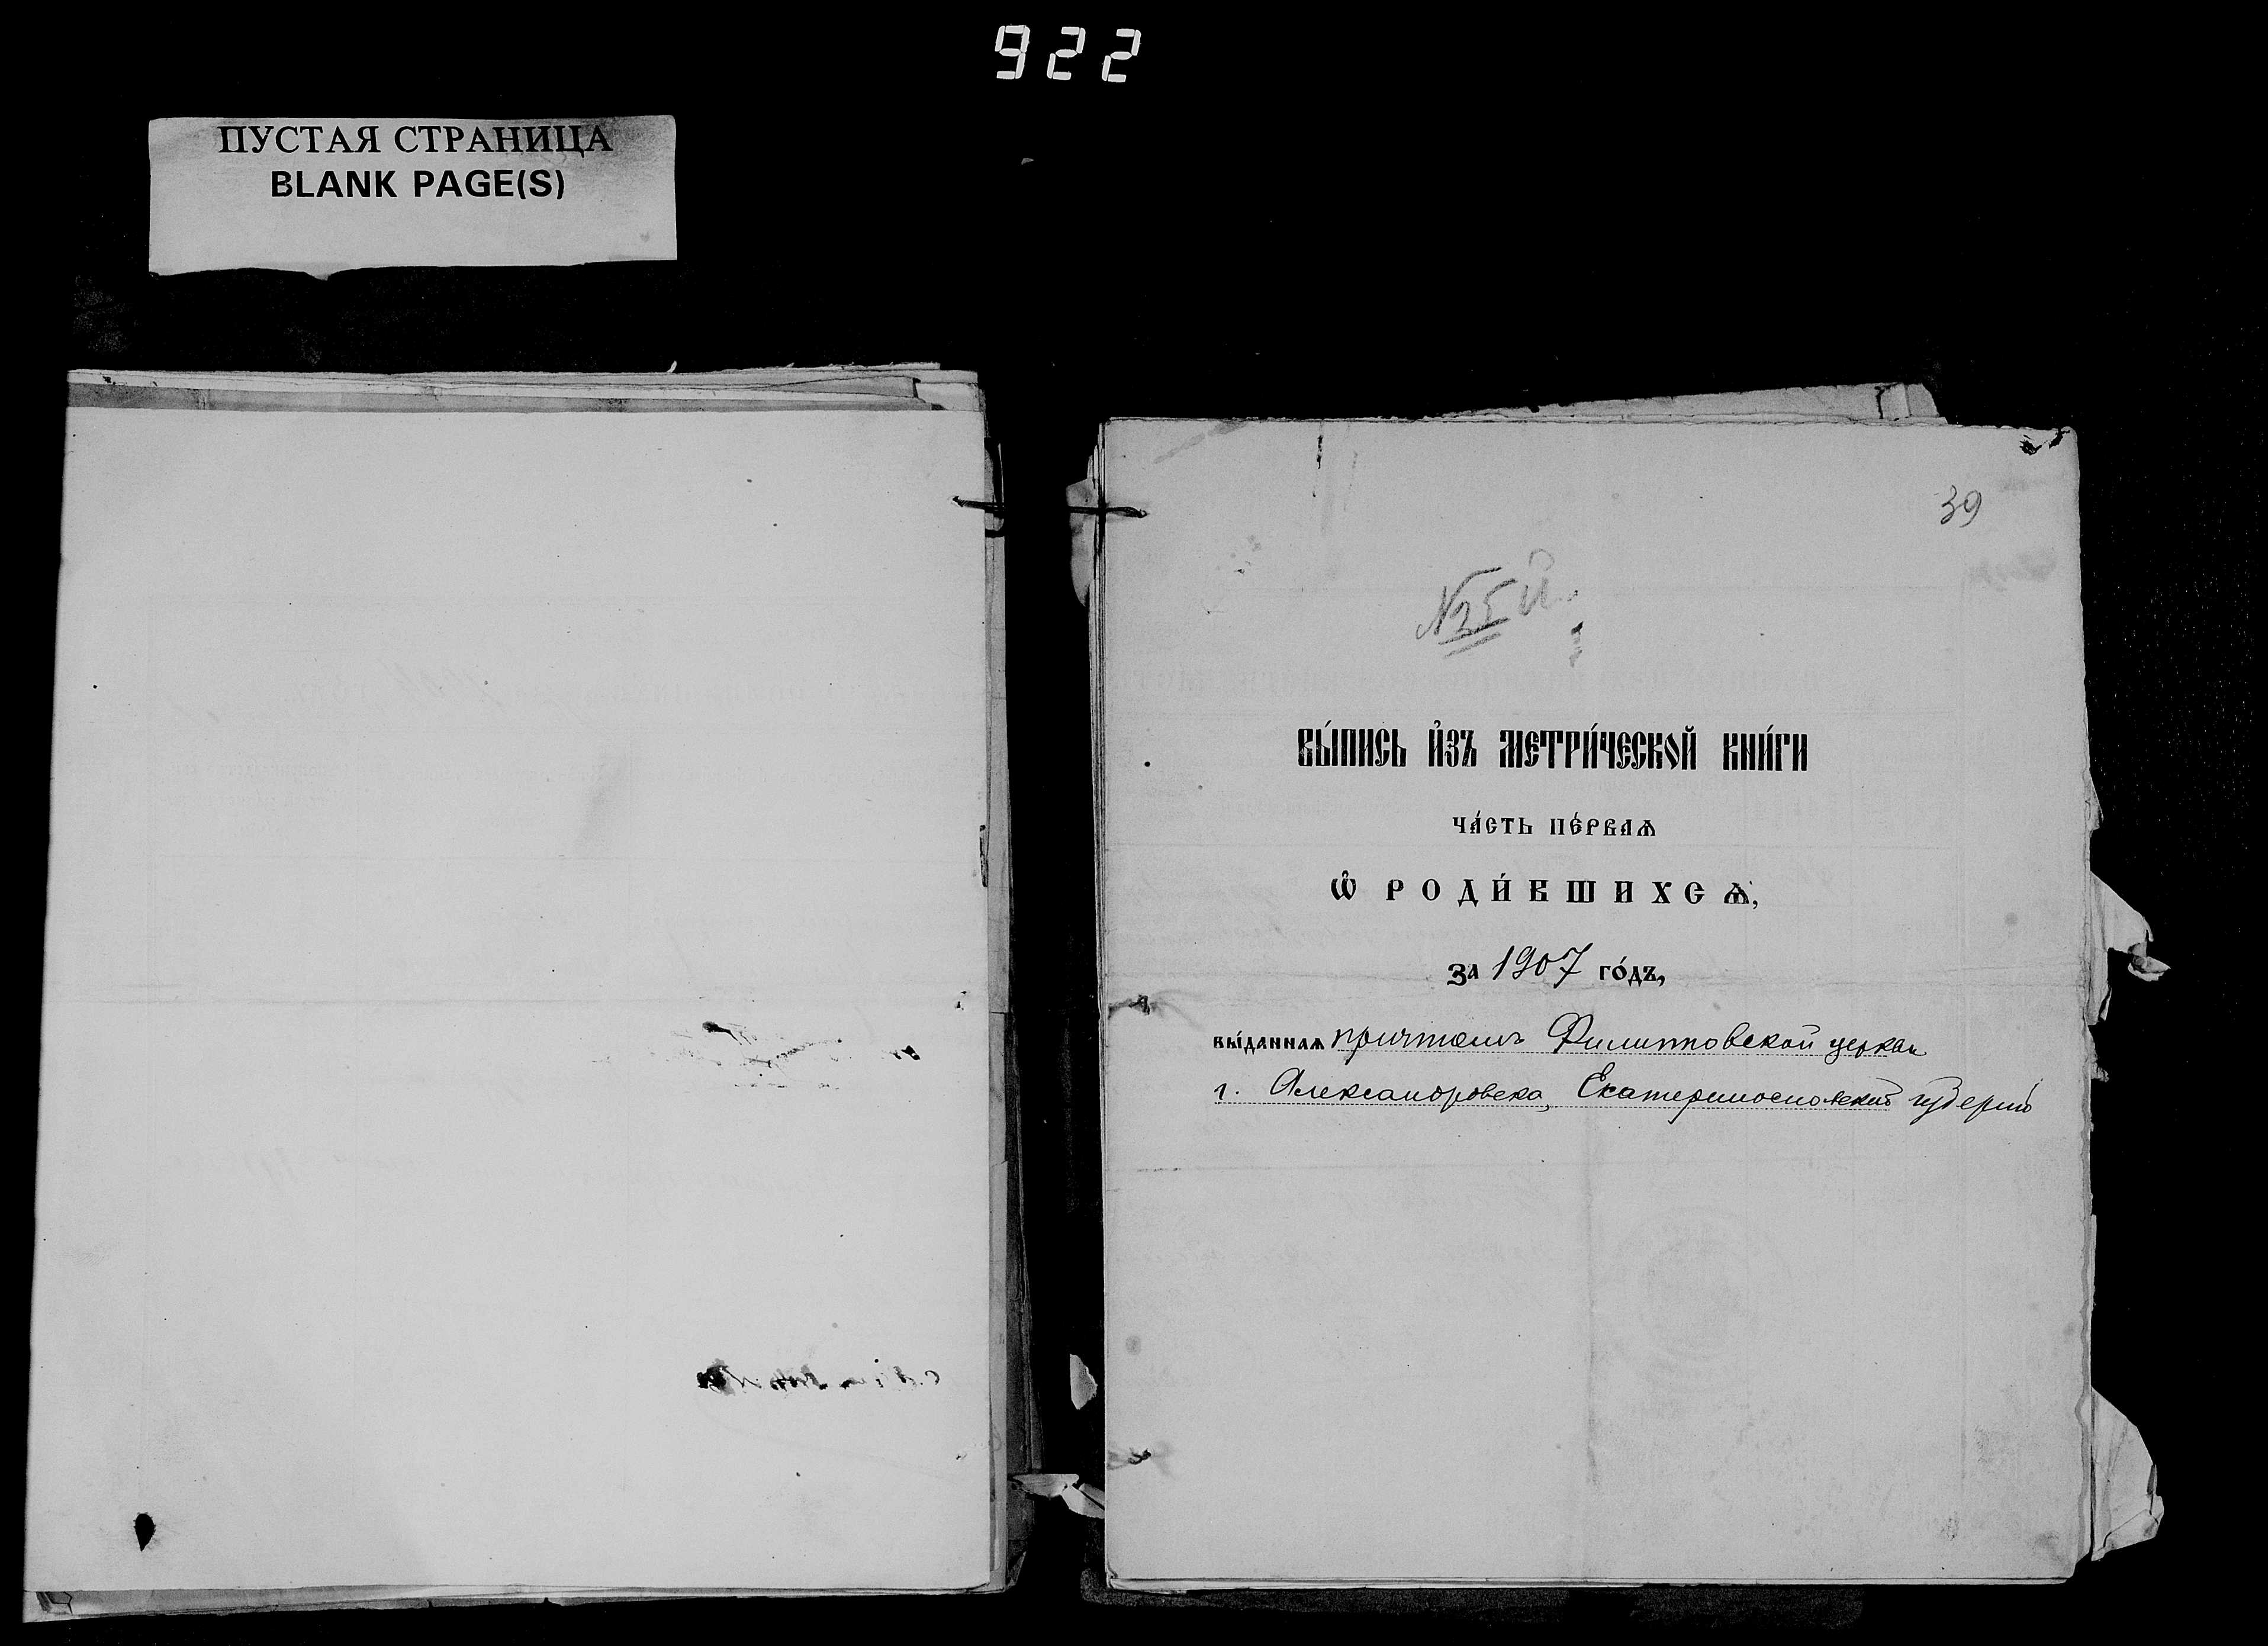 922
ПУСТАЯ СТРАНИЦА
BLANK PAGE(S)
39
№25
Вы́пись и҆зъ метри́ческой кни́ги
ча́сть пе́рваѧ
Ѽ роди́вшихсѧ,
за 1907 го́дъ,
вы́даннаѧ причтомъ Филипповской церкви
г. Александровска, Екатеринославской губерніи